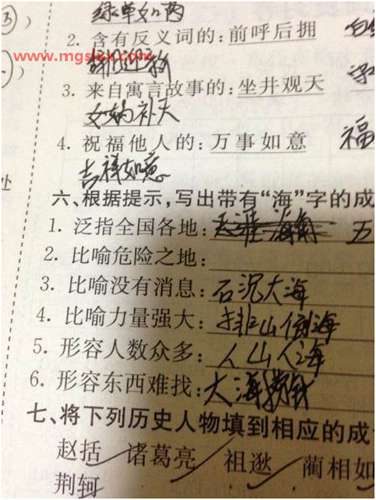 2. 含有反义词的:前呼后拥
3. 来自寓言故事的:坐井观天
女娲补天
4. 祝福他人的:万事如意 福
吉祥如意
处
六、根据提示,写出带有“海”字的成
1. 泛指全国各地: 五
2. 比喻危险之地:
3. 比喻没有消息:石沉大海
4. 比喻力量强大:排山倒海
5. 形容人数众多:人山人海
6. 形容东西难找:大海捞针
七、将下列历史人物填到相应的成
赵括 诸葛亮 祖逖 蔺相如
荆轲